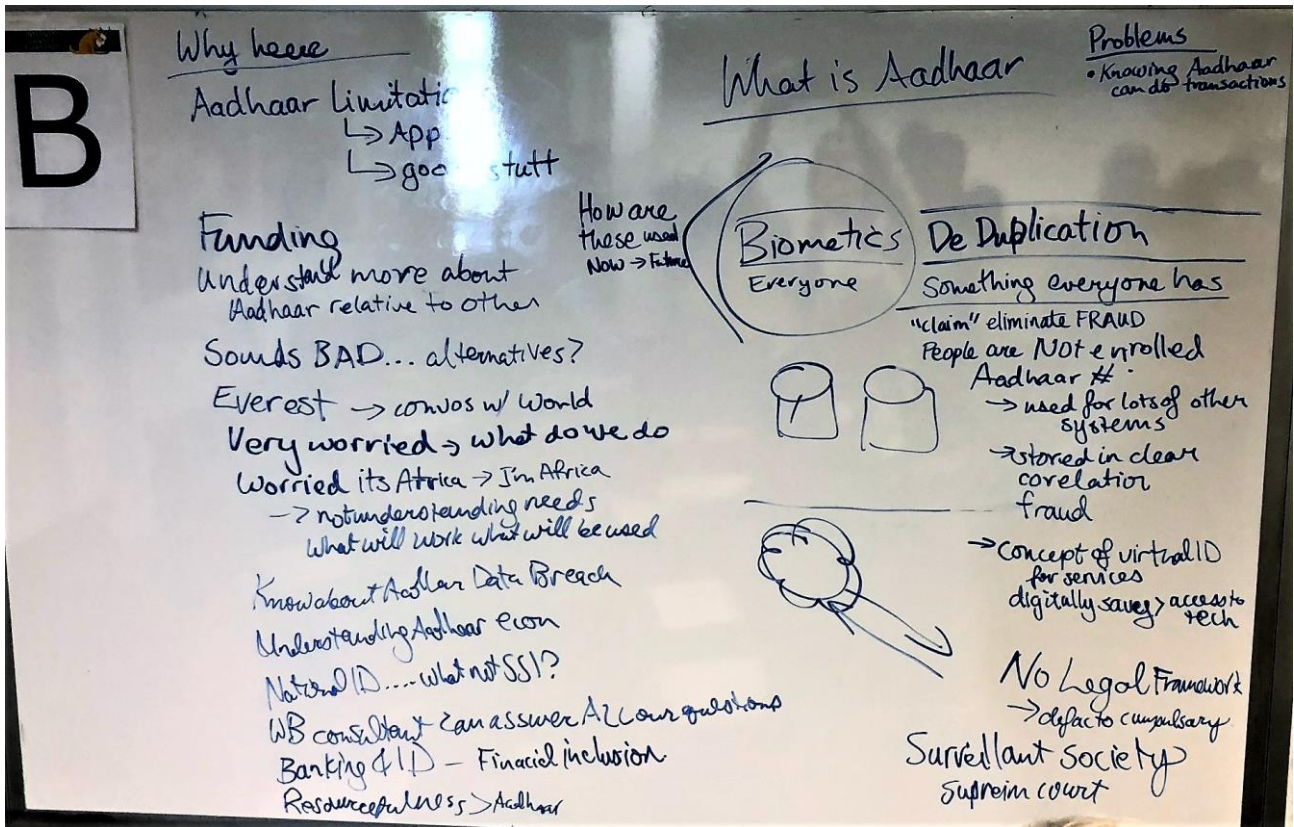 B
Why heere
Aadhaar Limitatio
↳ App
↳ goo stutt
Funding
Understand more about
Aadhaar relative to other
Sounds BAD... alternatives?
Everest → convos w/ World
Very worried → what do we do
Worried its Africa → I'm Africa
→ not understanding needs
What will work what will be used
Know about Aadhaar Data Breach
Understanding Aadhaar econ
National ID .... what not SSI?
WB consultant can asswer ALL our questions
Banking & ID - Finacial inclusion
Resourcefulness > Aadhaar
What is Aadhaar
How are
these used
Now → Future
Biometics
Everyone
Problems
• Knowing Aadhaar
can do transactions
De Duplication
Something everyone has
"claim" eliminate FRAUD
People are NOT enrolled
Aadhaar #
→ used for lots of other
systems
→ stored in clear
corelation
fraud
→ concept of virtual ID
for services
digitally savey > access to
tech
No Legal Framework
→ defacto cumpulsary
Surveillant Society
Supreim court